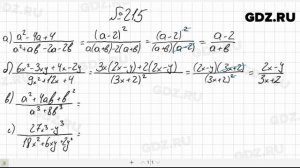 GDZ.RU
№215
а) (a² - 4a + 4)/(a² + ab - 2a - 2b) = (a - 2)²/(a(a + b) - 2(a + b)) = (a - 2)²/((a + b)(a - 2)) = (a - 2)/(a + b)
б) (6x² - 3xy + 4x - 2y)/(9x² + 12x + 4) = (3x(2x - y) + 2(2x - y))/(3x + 2)² = ((2x - y)(3x + 2))/(3x + 2)² = (2x - y)/(3x + 2)
в) (a² + 4ab + b²)/(a³ + 8b³)
г) (27x³ - y³)/(18x² + 6xy + 2y²)
GDZ.RU